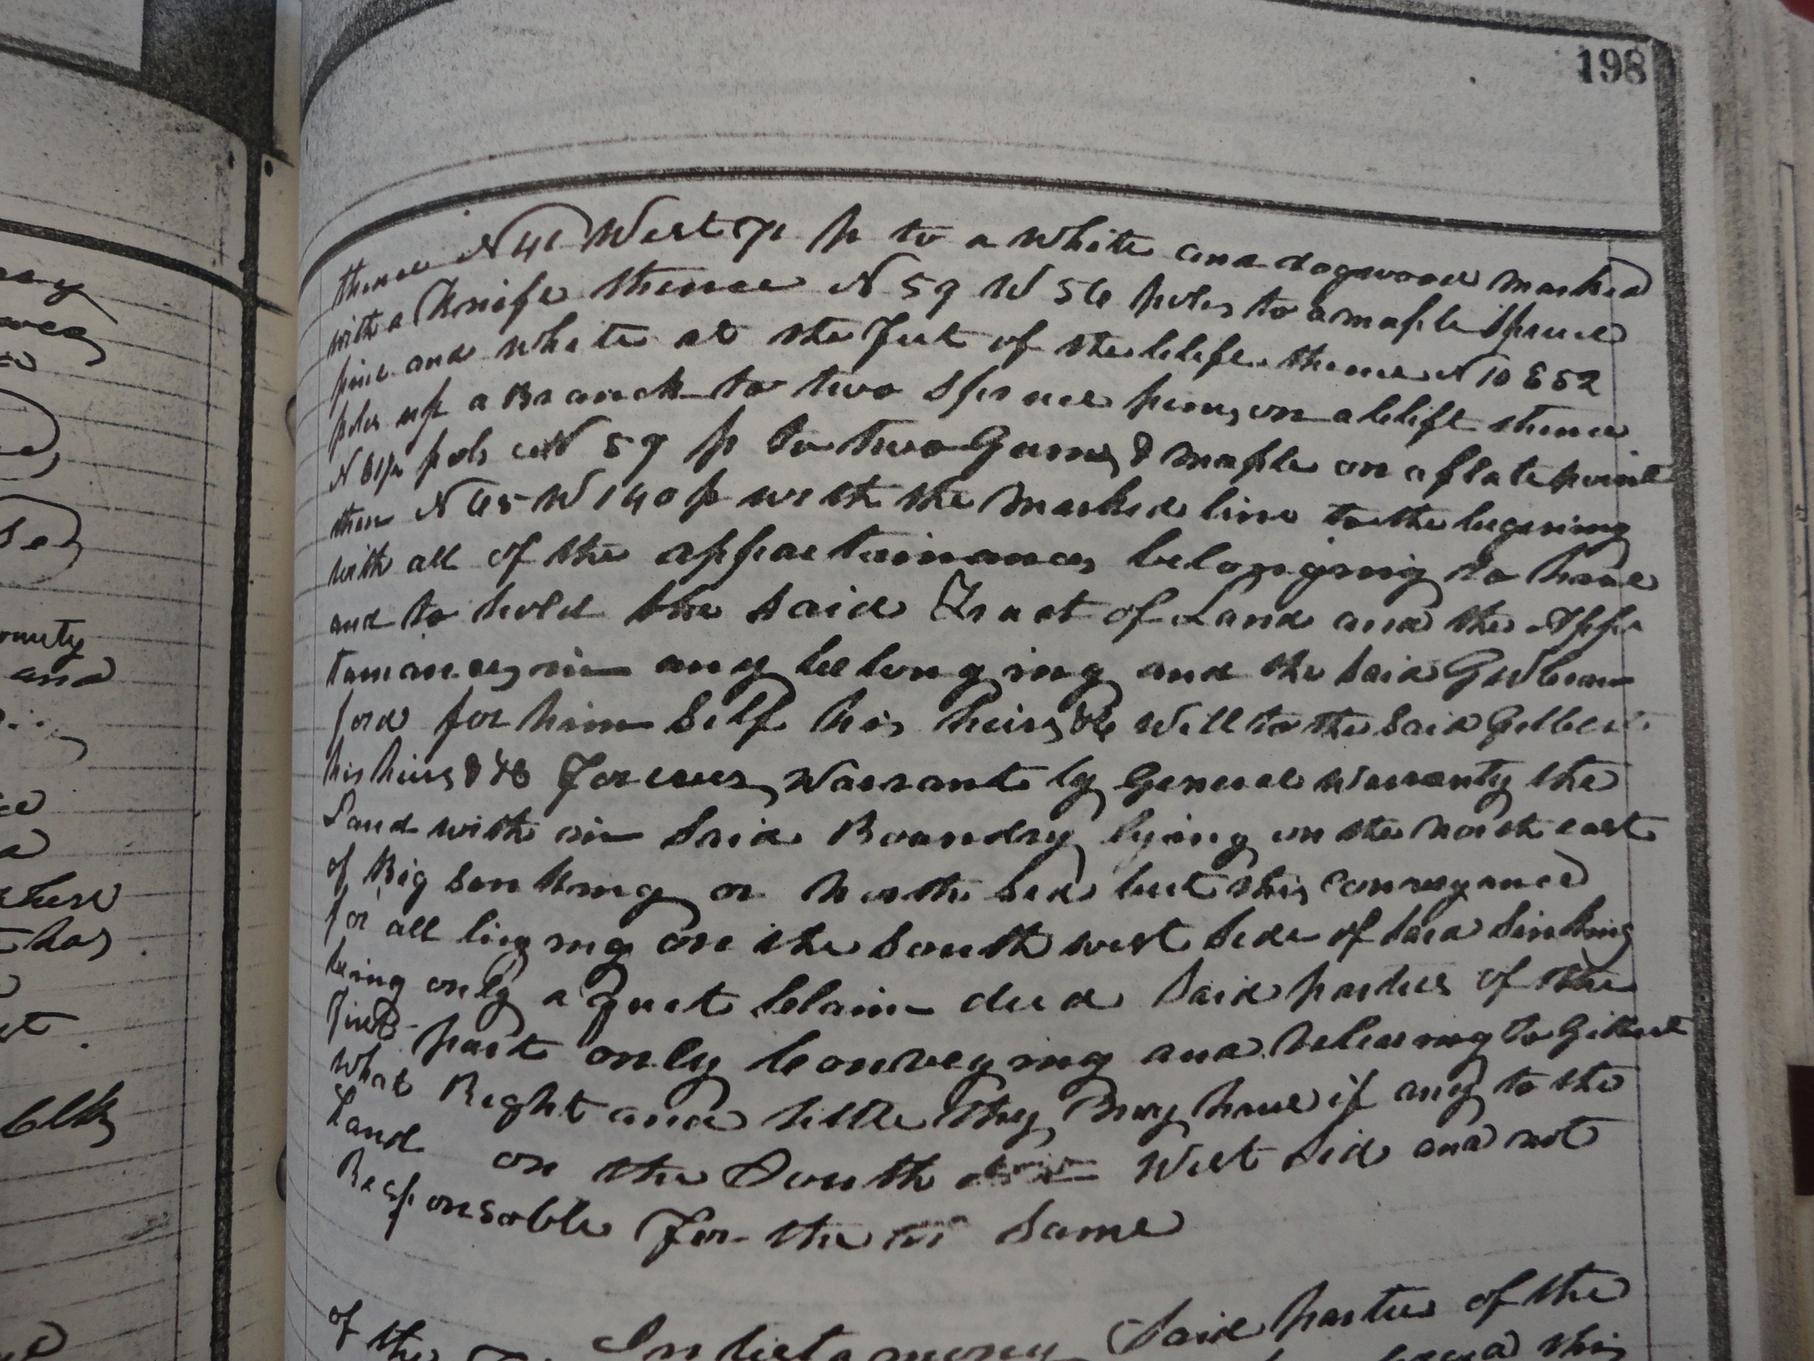 198
thence N 41 West 71 p to a White and dogwood marked
with a Knife thence N 59 W 56 poles to a maple Spruce
pine and white at the Feet of the Clife thence N 10 E 52
poles up a Branch to two Spruce pines on a Clift thence
N 81 pols N 59 p to two Gums & maple on a flate point
then N 45 W 140 p with the Marked line to the begining
with all of the appertainances belonging to have
and to hold the said Tract of Land and the App
tainances in any belonging and the said
ford for him Self his heirs &c Will to the Said Gilbert
his heirs & Forever Warrant by General Warranty the
Land with in Said Boundry lying on the north east
of Big Sinking or North Sid but this conveyance
for all lieying on the South west Side of Said Sinking
being only a quet Claim deed Said parties of the
first part only Conveying and releasing to Gilbert
What Right and tittle they May have if any to the
Land on the South West Sid and not
Responsable For the same
In testamony Said parties of the
of the
ounty
and
Clk